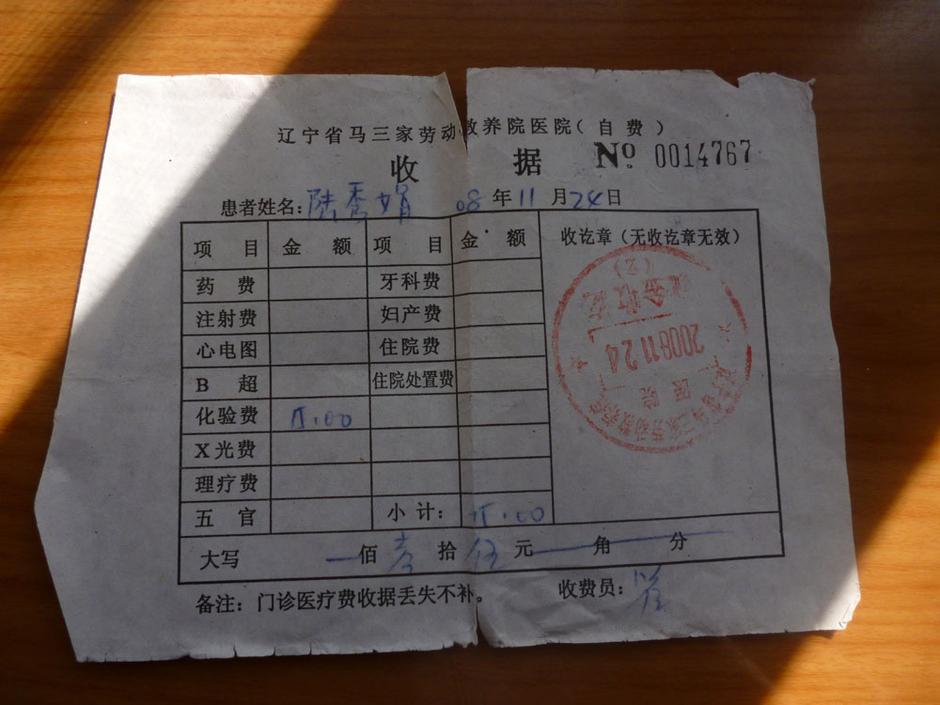 辽宁省马三家劳动教养院医院(自费)
收 据 № 0014767
患者姓名:陆秀娟 08年11月24日
项目 金额 项目 金额 收讫章(无收讫章无效)
药费 牙科费
注射费 妇产费
心电图 住院费
B超 住院处置费
化验费 15.00
X光费
理疗费
五官 小计: 15.00
大写 佰 壹 拾 伍 元 角 分
备注:门诊医疗费收据丢失不补。 收费员:
2008 11 24
现金收讫
(2)